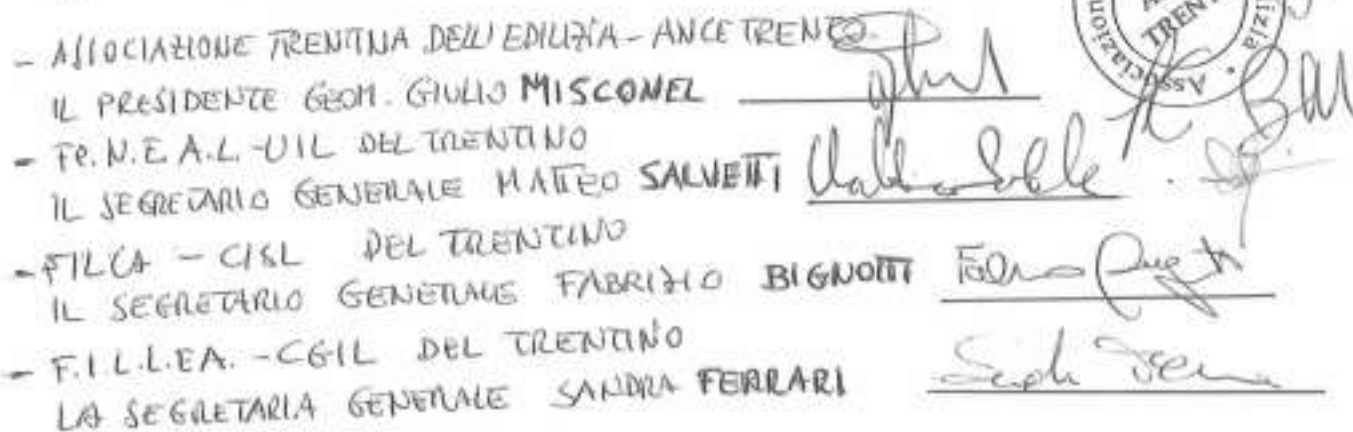 - ASSOCIAZIONE TRENTINA DELL'EDILIZIA - ANCE TRENTO
IL PRESIDENTE GEOM. GIULIO MISCONEL
- Fe.N.E.A.L.-UIL DEL TRENTINO
IL SEGRETARIO GENERALE MATTEO SALVETTI
- FILCA - CISL DEL TRENTINO
IL SEGRETARIO GENERALE FABRIZIO BIGNOTTI
- F.I.L.L.E.A. - CGIL DEL TRENTINO
LA SEGRETARIA GENERALE SANDRA FERRARI